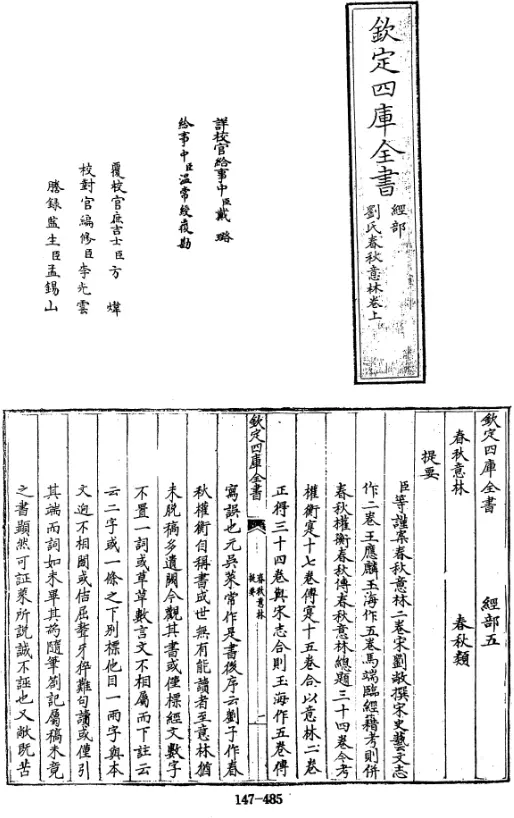 欽定四庫全書
經部
劉氏春秋意林卷上
詳校官給事中臣戴璐
給事中臣溫常綬覆勘
覆校官庶吉士臣方煒
校對官編修臣李光雲
謄錄監生臣孟錫山
欽定四庫全書 經部五
春秋意林 春秋類
提要
臣等謹案春秋意林二卷宋劉敞撰宋史藝文志
作二卷王應麟玉海作五卷馬端臨經籍考則併
春秋權衡春秋傳春秋意林總題三十四卷今考
權衡寔十七卷傳寔十五卷合以意林二卷
正得三十四卷與宋志合則玉海作五卷傳
欽定四庫全書
春秋意林
提要
二
寫誤也元吳萊常作是書後序云劉子作春
秋權衡自稱書成世無有能讀者至意林猶
未脫稿多遺闕今觀其書或僅標經文數字
不置一詞或草草數言文不相屬而下註云
云二字或一條之下別標他目一兩字與本
文迥不相關或佶屈聱牙猝難句讀或僅引
其端而詞如未畢其為隨筆劄記屬稿未竟
之書顯然可証萊所說誠不誣也又敞既苦
147-485